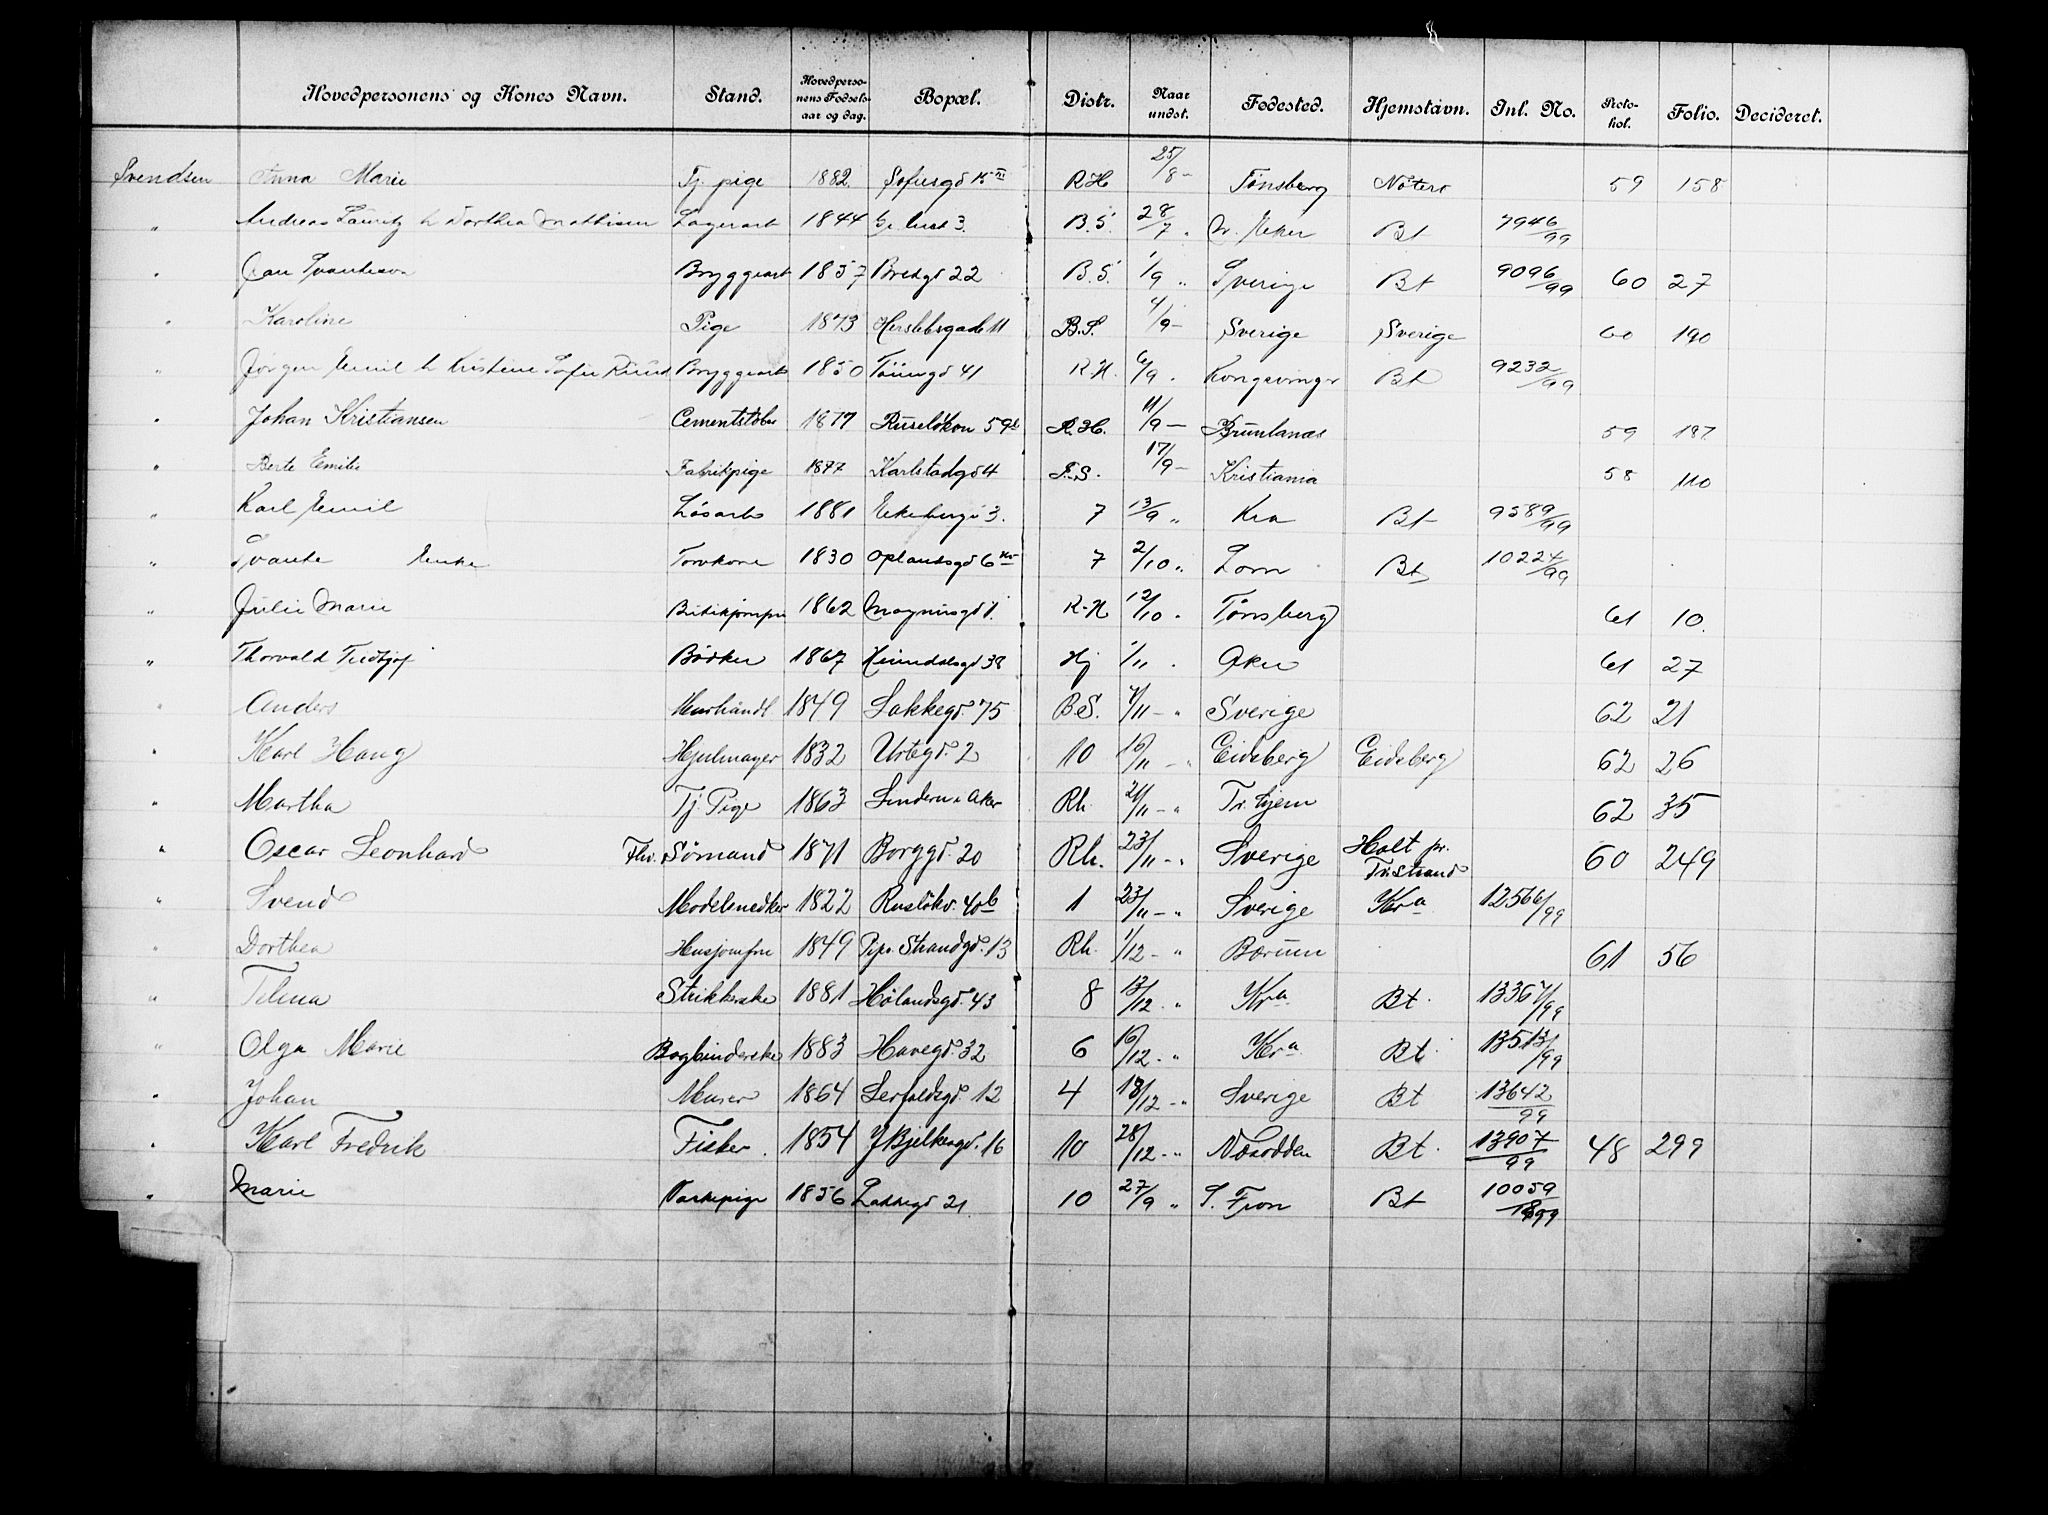 Hovedpersonens og Kones Navn. Stand. Hovedpersonens Fødselsaar og dag. Bopæl. Distr. Naar undst. Fødested. Hjemstavn. Inl. No. Protokol. Folio. Decideret.
Svendsen Anna Marie Tj. pige 1882 Sofiesgd 15 R.H 25/8 - Tønsberg Nøterø 59 158
" Andreas Lauritz h Dorthea Mathisen Lagerarb 1844 B.S. 28/7 " Eker Bt 7946/99
" Bryggearb 1857 Bredgd 22 B.S. 1/9 " Sverige Bt 9096/99 60 27
" Karoline Pige 1873 Herslebsgade 11 B.S. 4/9 - Sverige Sverige 60 190
" Jørgen Emil h Kristine Sofie Ruud Bryggearb 1850 Tøiengd 41 R.H. 6/9 " Kongsvinger Bt 9232/99
" Johan Kristiansen Cementstøber 1877 Ruseløkvn 59 R.H. 11/9 - Brunlanæs 59 187
" Berte Emilie Fabrikpige 1877 Karlstadgd 4 17/9 - Kristiania 58 110
" Karl Emil Løsarb 1881 Ekebergv 3. 7 13/9 " Kra Bt 9589/99
" Svante Enke Torvkone 1830 Oplandsgd 6 7 2/10 " Lom Bt 10224/99
" Julie Marie Butikjomfru 1862 Magnusgd 1 R.H 12/10 " Tønsberg 61 10.
" Thorvald Fridtjof Bødker 1867 Heimdalsgd 38 Hj 1/11 " Aker 61 27
" Anders 1849 Lakkegd. 75 B.S. 7/11 - " Sverige 62 21
" Karl Haug Hjulmager 1832 Urtegd. 2 10 16/11 - " Eidsberg Eidsberg 62 26
" Martha Tj. Pige 1863 Lindern i Aker Rh. 21/11 - " Tr.hjem 62 35
" Oscar Leonhard Fhv. Sømand 1871 Borggd. 20 Rh. 23/11 - " Sverige Holt pr. Tvistrand 60 249
" Svend Modelsnedker 1822 Rusløkv. 40b 1 23/11 - " Sverige Kra 12566/99
" Dorthea Husjomfru 1849 Pipv. Strandgd. 13 Rh. 1/12 - " Bærum 61 56
" Tilma Strikkerske 1881 Hølandsgd. 43 8 13/12 " Kra Bt. 13367/99
" Olga Marie Bogbinderske 1883 Havegd. 32 6 16/12 - " Kra Bt. 13513/99
" Johan Murer 1864 12 4 18/12 - " Sverige Bt 13642/99
" Karl Fredrik Fisker. 1854 J Bjelkesgd. 16 10 28/12 - " Næsodden Bt. 13907/99 48 299
" Marie Vaskepige 1856 Lakkegd 21. 10 27/9 " S. Fron Bt 10059/1899